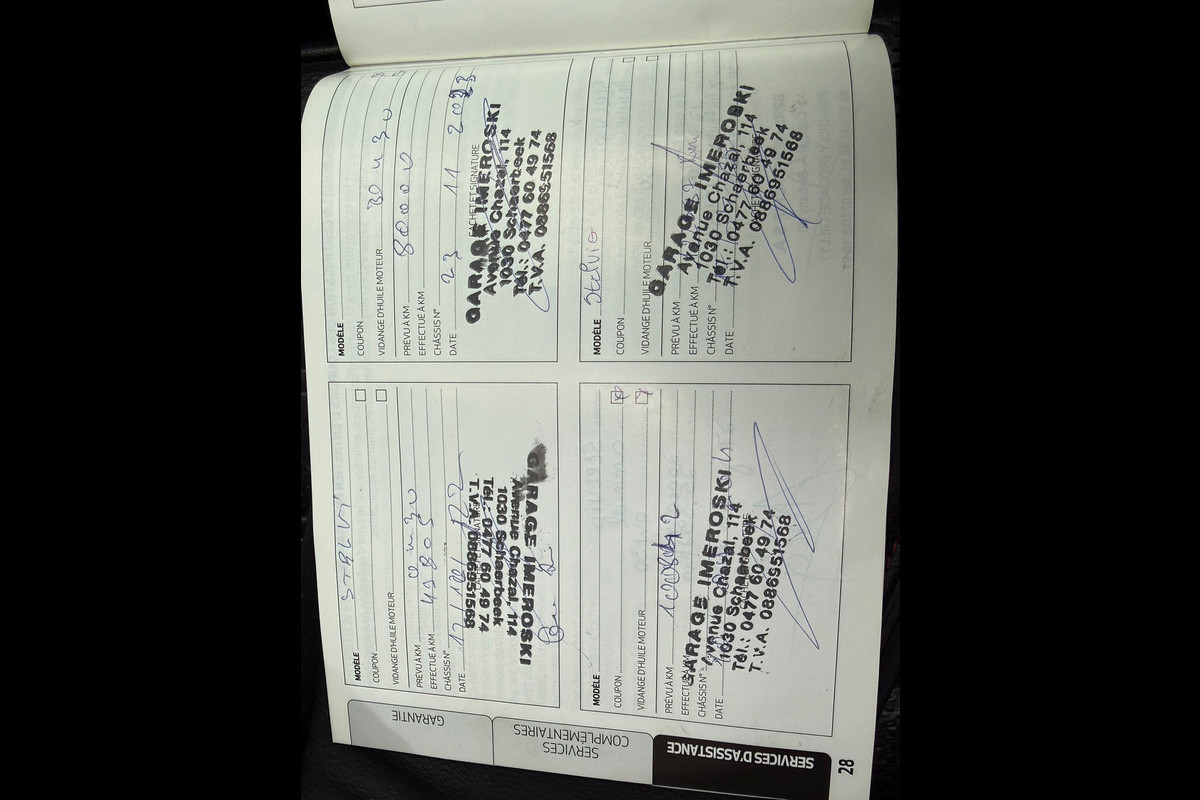 MODÈLE STELVY
COUPON
VIDANGE D'HUILE MOTEUR
PRÉVU À KM
EFFECTUÉ À KM
CHÂSSIS N°
DATE
GARAGE IMEROSKI
Avenue Chazal, 114
1030 Schaerbeek
Tél.: 0477 60 49 74
T.V.A. 0886951568
MODÈLE
COUPON
VIDANGE D'HUILE MOTEUR
PRÉVU À KM
EFFECTUÉ À KM 80000
CHÂSSIS N°
DATE 23 11 2023
CACHET ET SIGNATURE
GARAGE IMEROSKI
Avenue Chazal, 114
1030 Schaerbeek
Tél.: 0477 60 49 74
T.V.A. 0886951568
MODÈLE
COUPON
VIDANGE D'HUILE MOTEUR
PRÉVU À KM
EFFECTUÉ À KM
CHÂSSIS N°
DATE
GARAGE IMEROSKI
Avenue Chazal, 114
1030 Schaerbeek
Tél.: 0477 60 49 74
T.V.A. 0886951568
MODÈLE Stelvio
COUPON
VIDANGE D'HUILE MOTEUR
PRÉVU À KM
EFFECTUÉ À KM
CHÂSSIS N°
DATE
GARAGE IMEROSKI
Avenue Chazal, 114
1030 Schaerbeek
Tél.: 0477 60 49 74
T.V.A. 0886951568
GARANTIE
SERVICES
COMPLÉMENTAIRES
SERVICES D'ASSISTANCE
28